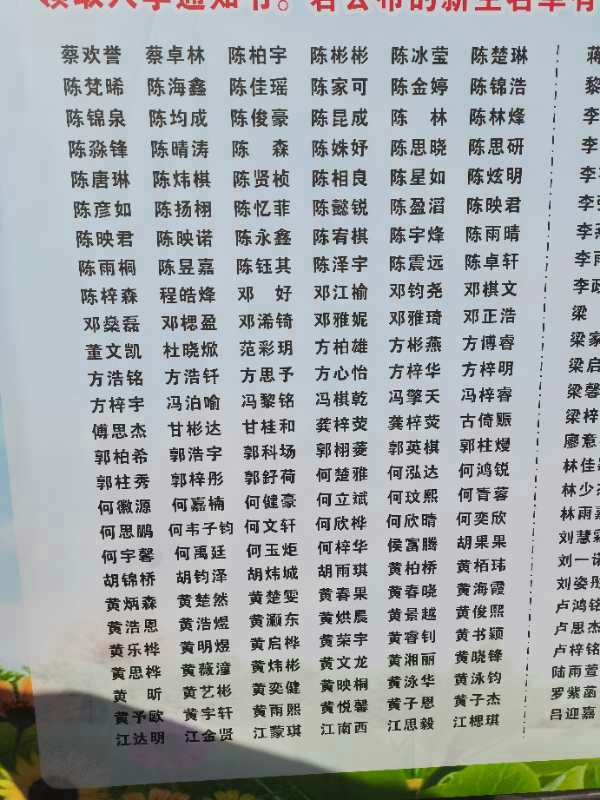 领取入学通知书。若公布的新生名单有
蔡欢誉 蔡卓林 陈柏宇 陈彬彬 陈冰莹 陈楚琳
陈梵晞 陈海鑫 陈佳瑶 陈家可 陈金婷 陈锦浩
陈锦泉 陈均成 陈俊豪 陈昆成 陈林 陈林烽
陈淼锋 陈晴涛 陈森 陈姝妤 陈思晓 陈思研
陈唐琳 陈炜棋 陈贤桢 陈相良 陈星如 陈炫明
陈彦如 陈扬栩 陈忆菲 陈懿锐 陈盈滔 陈映君
陈映君 陈映诺 陈永鑫 陈宥棋 陈宇烽 陈雨晴
陈雨桐 陈昱嘉 陈钰其 陈泽宇 陈震远 陈卓轩
陈梓森 程皓烽 邓好 邓江榆 邓钧尧 邓棋文
邓燊磊 邓楒盈 邓浠锜 邓雅妮 邓雅琦 邓正浩
董文凯 杜晓焮 范彩玥 方柏雄 方彬燕 方傅睿
方浩铭 方浩钎 方思予 方心怡 方梓华 方梓明
方梓宇 冯泊喻 冯黎铭 冯棋乾 冯擎天 冯梓睿
傅思杰 甘彬达 甘桂和 龚梓荧 龚梓荧 古倚赈
郭柏希 郭浩宇 郭科场 郭栩菱 郭英棋 郭柱熳
郭柱秀 郭梓彤 郭舒荷 何楚雅 何泓达 何鸿锐
何徽源 何嘉楠 何健豪 何立斌 何玟熙 何青蓉
何思鹏 何韦子钧 何文轩 何欣桦 何欣晴 何奕欣
何宇馨 何禹廷 何玉炬 何梓华 侯富腾 胡果果
胡锦桥 胡钧泽 胡炜城 胡雨琪 黄柏桥 黄栢玮
黄炳森 黄楚然 黄楚雯 黄春果 黄春晓 黄海霞
黄浩恩 黄浩煜 黄灏东 黄烘晨 黄景越 黄俊熙
黄乐桦 黄明煜 黄启桦 黄荣宇 黄睿钊 黄书颖
黄思桦 黄薇潼 黄炜彬 黄文龙 黄湘丽 黄晓锋
黄昕 黄艺彬 黄奕健 黄映桐 黄泳华 黄泳钧
黄予欧 黄宇轩 黄雨熙 黄悦馨 黄子恩 黄子杰
江达明 江金贤 江蒙琪 江南西 江思毅 江楒琪
蒋
黎
李
李
李
李
李
李雨
李政
梁
梁家
梁启
梁馨
梁梓
廖意
林佳
林少
林雨嘉
刘慧
刘一诺
刘姿彤
卢鸿铭
卢思杰
卢梓铭
陆雨萱
罗紫菡
吕迎嘉